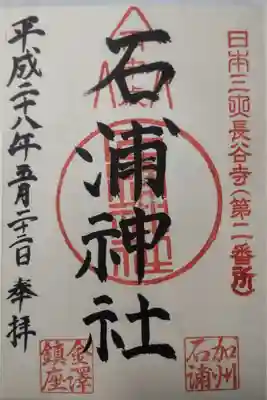 日本三大長谷寺(第二番所)
加州
石浦
石浦神社
平成二十八年五月二十二日 奉拝
金澤
鎮座